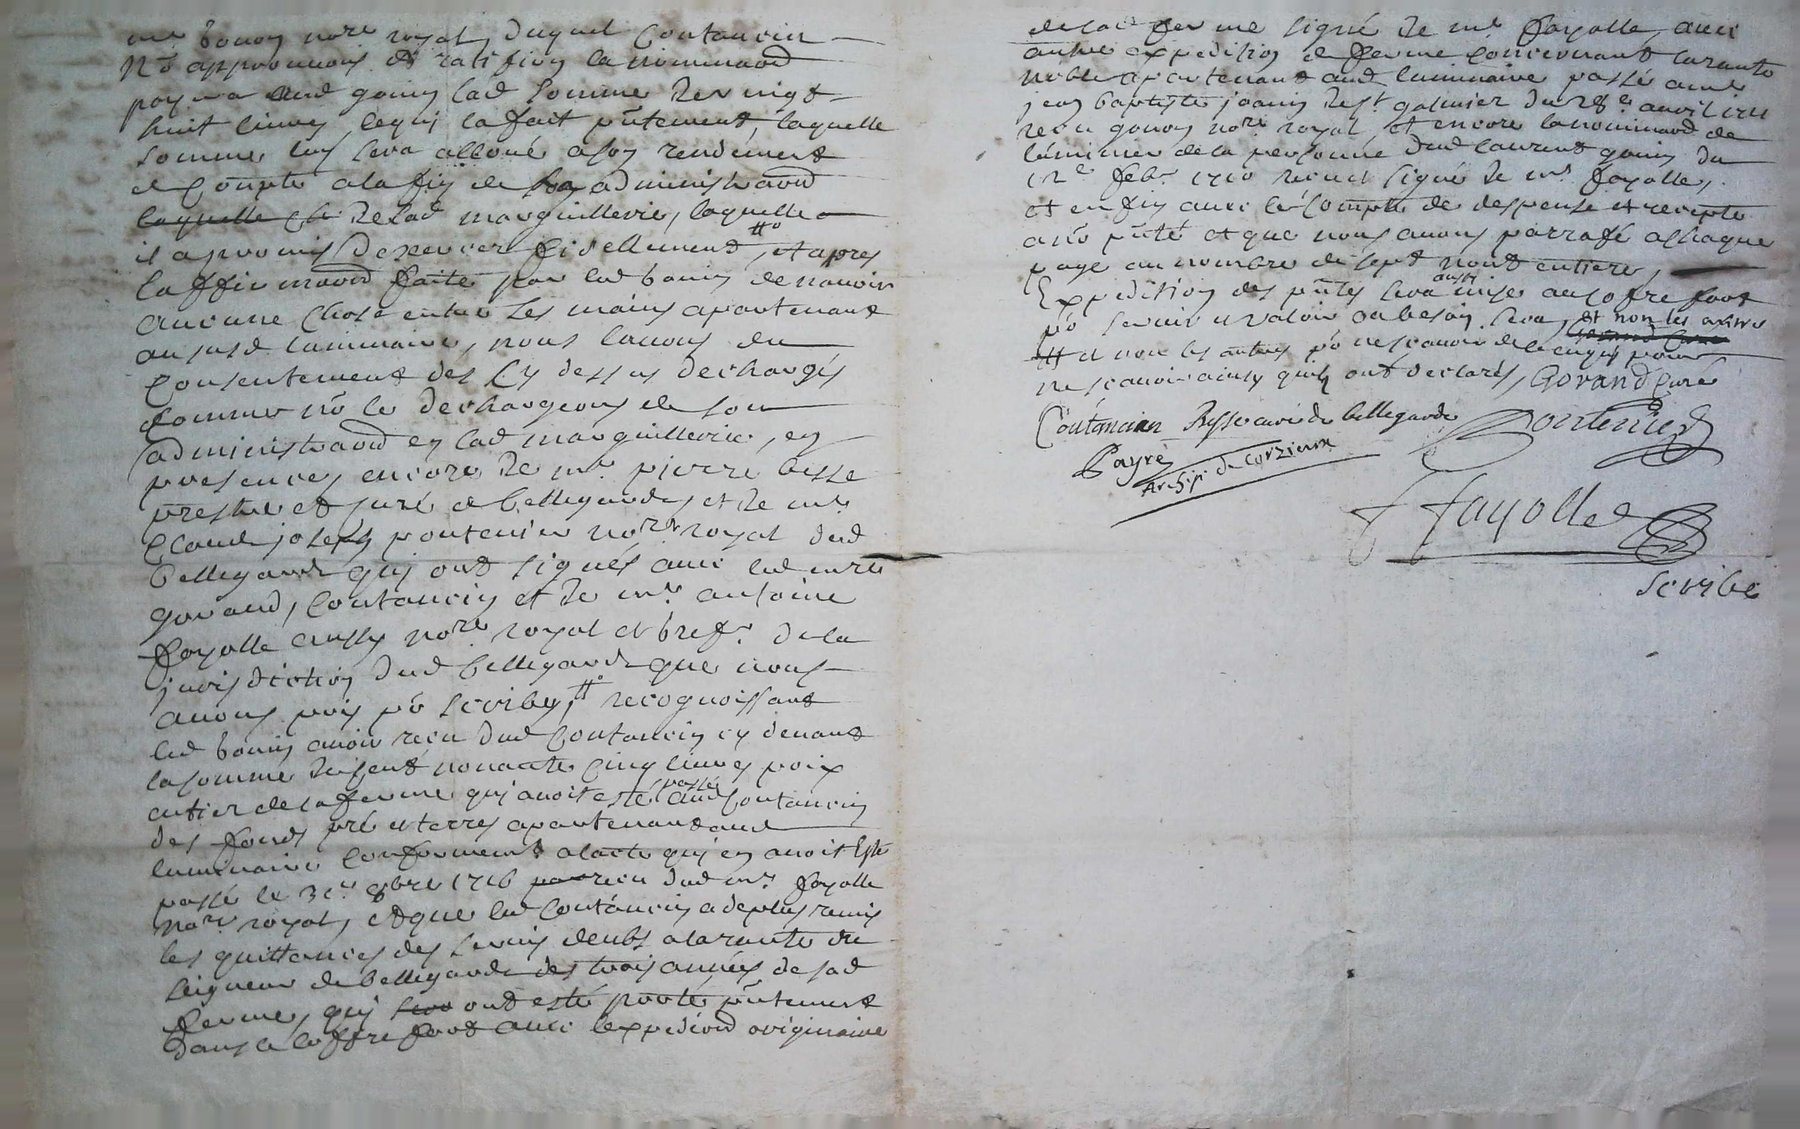 me bonon nore royal, duquel Coutancin
No approuvons et ratifion la nominaon
payera aud gonin lad somme de vingt
huit livres, lequi la fait pntement, laquelle
somme luy sera alloué a son rendement
de Compte a la fin de son administraon
laquelle de lad marguillerie, laquelle
il a promis dexercer fidellement #, et apres
laffirmaon faite par led bonin de navoir
aucune chose entre les mains apartenant
au susd luminaire, nous lavons du
Consentement des Cy dessus dechargés
Comme no le dechargeons de son
administraon en lad marguillerie, en
presence, encore de mre pierre besse
prestre et curé de bellegarde, et de me
Claude joseph pontenier nore royal dud
bellegarde qui ont signés avec led curé
gorand, Coutancin et de me antoine
fayolle aussy nore royal et gref. de la
jurisdiction dud bellegarde que nous
avons pris po scribe, # recognoissant
led bonin avoir receu dud Coutancin cy devant
la somme de cent nonante Cinq livres prix
entier de la ferme qui avoit esté passée aud Coutancin
des fonds pré et terres apartenant aud
luminaire Conformement a lacte qui en avoit Esté
passé le 3e. 8bre 1716 receu dud me fayolle
nore royal, et que led Coutancin a de plus remis
les quittances des servis deubs a la rante du
seigneur de bellegarde des trois années de lad
ferme, qui ont esté porté pntement
dans le coffre fort avec lexpedion originaire
de lad ferme signé de me fayolle, avec
autre expedition de ferme concernant la rante
noble apartenant aud luminaire passée a me
jean baptiste joanin de st galmier du 28e avril 1711
receu gonon nore royal, et encore la nominaon de
luminier de la personne dud laurent gonin du
12e febr. 1710 receu et signé de me fayolle,
et enfin avec le Compte de despense et recepte
a no pnté et que nous avons parrafé a chaque
page au nombre de sept entiere,
Expedition des pntes sera aussy mise au coffre fort
po servir et valoir au besoin sera, et non les autres
# et non les autres po ne scavoir de ce enquis pour
ne scavoir ainsy quils ont declarés, Gorand Curé
Coutancien Besse curé de bellegarde Pontenier
Payre
Archipr. de Courzieux
Fayolle
scribe